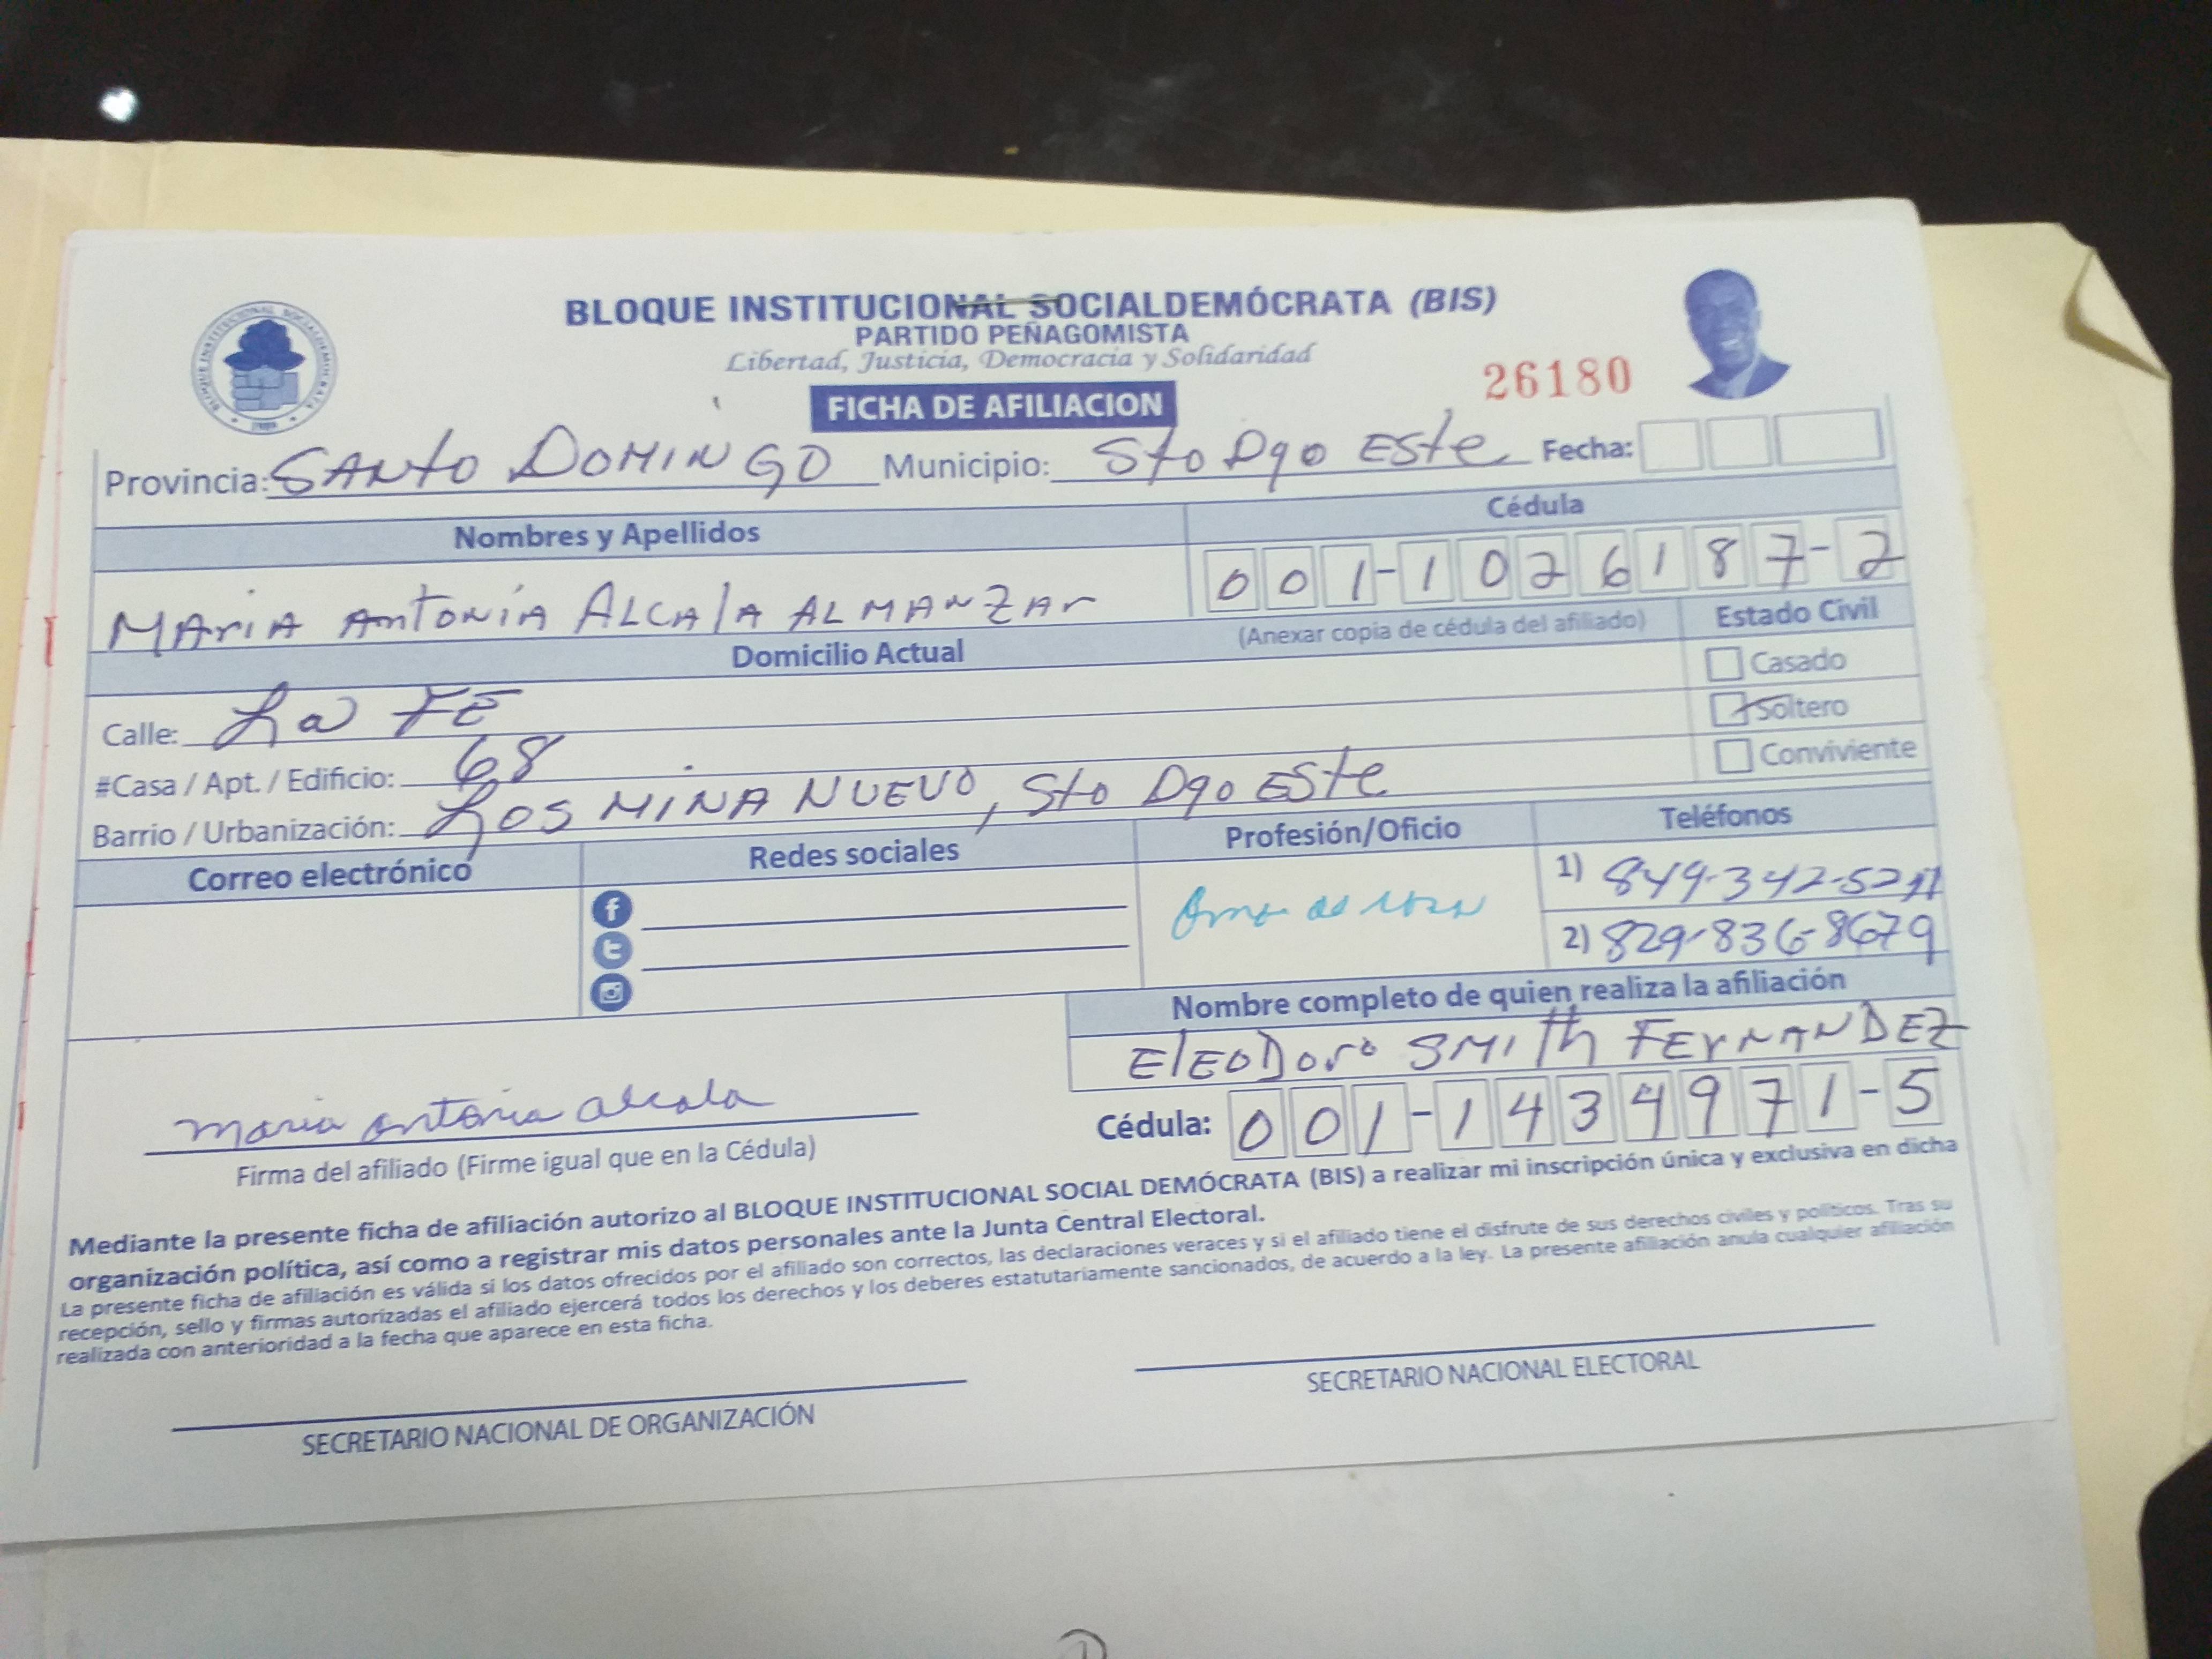 BLOQUE INSTITUCIONAL SOCIALDEMÓCRATA (BIS)
PARTIDO PEÑAGOMISTA
Libertad, Justicia, Democracia y Solidaridad
26180
FICHA DE AFILIACION
Provincia: SANTO DOMINGO Municipio: Sto Dgo ESte Fecha:
Nombres y Apellidos Cédula
MARIA ANTONIA ALCALA ALMANZAR 001-1026187-2
(Anexar copia de cédula del afiliado) Estado Civil
Domicilio Actual
Casado
Calle: La FE
Soltero
#Casa / Apt. / Edificio: 68
Conviviente
Barrio / Urbanización: LOS MINA NUEVO, Sto Dgo ESte
Correo electrónico Redes sociales Profesión/Oficio Teléfonos
1) 849-342-52
2) 829-836-8679
Nombre completo de quien realiza la afiliación
ELEODORO SMITH FERNANDEZ
maria antonia alcala
Cédula: 001-1434971-5
Firma del afiliado (Firme igual que en la Cédula)
Mediante la presente ficha de afiliación autorizo al BLOQUE INSTITUCIONAL SOCIAL DEMÓCRATA (BIS) a realizar mi inscripción única y exclusiva en dicha
organización política, así como a registrar mis datos personales ante la Junta Central Electoral.
La presente ficha de afiliación es válida si los datos ofrecidos por el afiliado son correctos, las declaraciones veraces y si el afiliado tiene el disfrute de sus derechos civiles y políticos. Tras su
recepción, sello y firmas autorizadas el afiliado ejercerá todos los derechos y los deberes estatutariamente sancionados, de acuerdo a la ley. La presente afiliación anula cualquier afiliación
realizada con anterioridad a la fecha que aparece en esta ficha.
SECRETARIO NACIONAL DE ORGANIZACIÓN SECRETARIO NACIONAL ELECTORAL